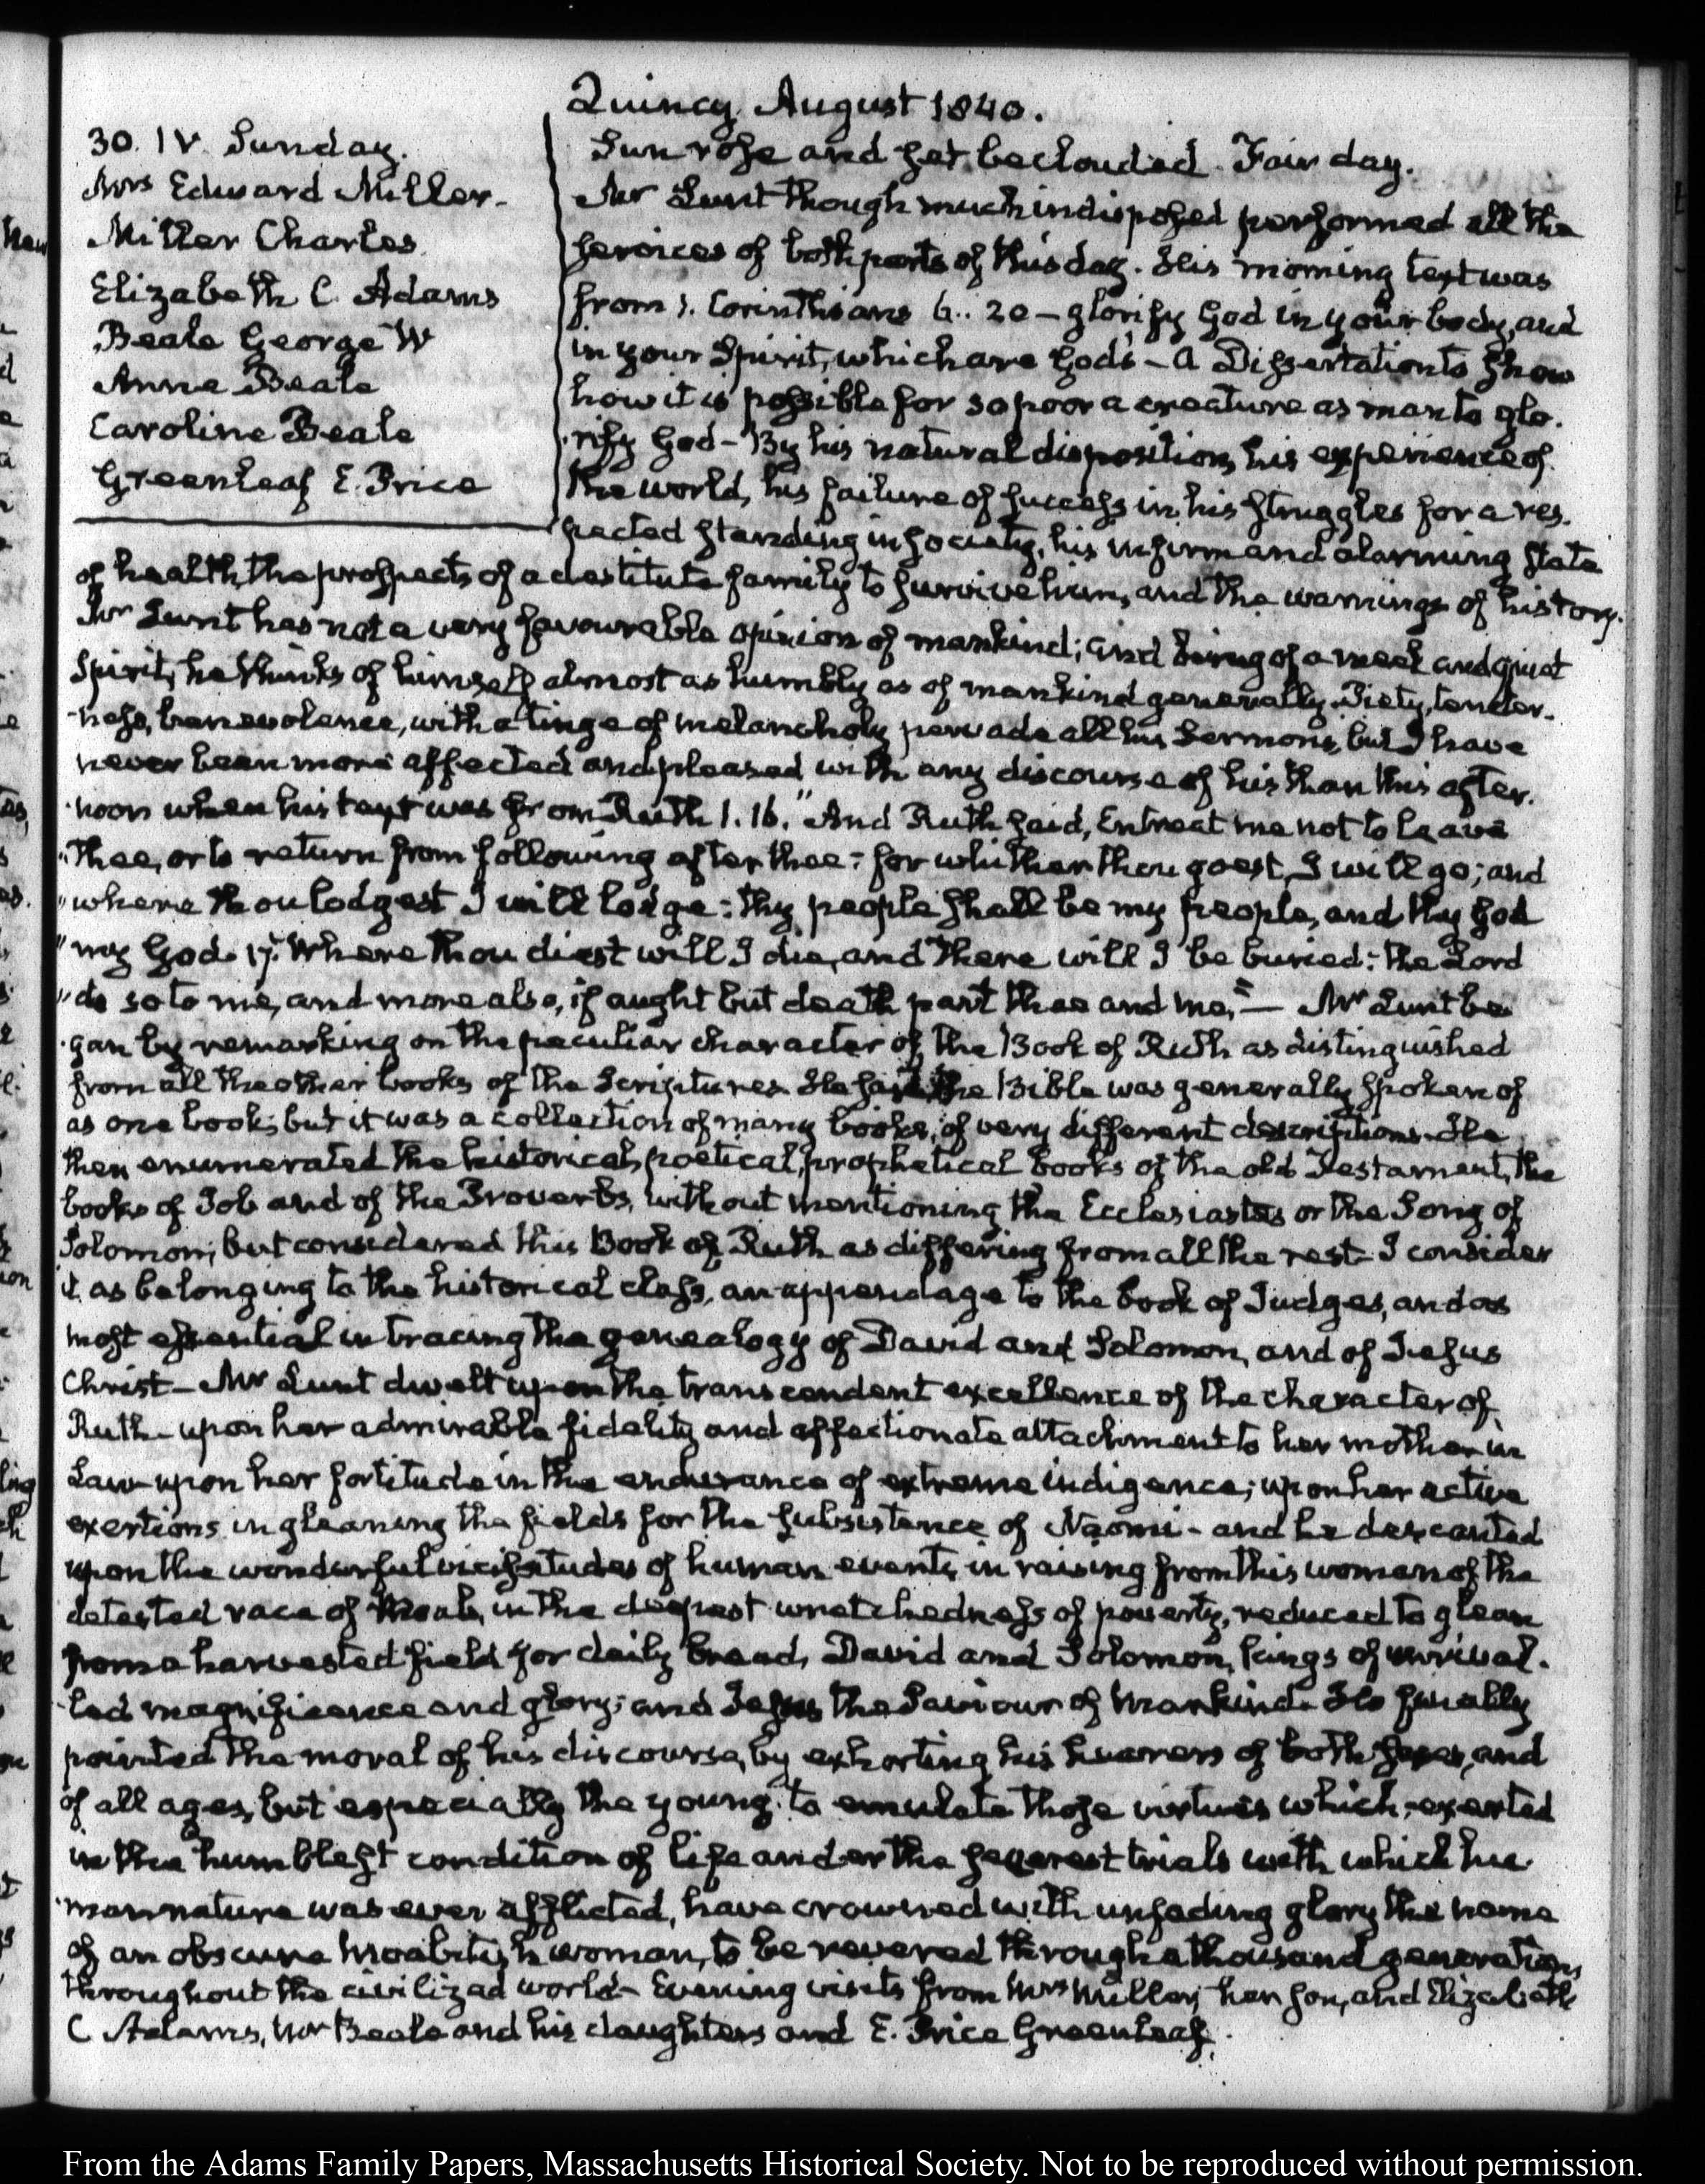 Quincy August 1840.
30. IV. Sunday.
Mrs Edward Miller.
Miller Charles
Elizabeth C. Adams
Beale George W
Anne Beale
Caroline Beale
Greenleaf E. Price
Sun rose and set beclouded. Fair day.
Mr Lunt though much indisposed performed all the
services of both parts of this day. His morning text was
from 1. Corinthians 6.. 20 — glorify God in your body, and
in your Spirit, which are God's — A Dissertation to show
how it is possible for so poor a creature as man to glo-
rify God — By his natural disposition, his experience of
the world, his failure of success in his struggles for a res-
pected standing in society, his infirm and alarming state
of health, the prospects of a destitute family to survive him, and the warnings of history.
Mr Lunt has not a very favourable opinion of mankind; and being of a meek and quiet
Spirit, he thinks of himself almost as humbly as of mankind generally. Piety, tender-
-ness, benevolence, with a tinge of melancholy pervade all his Sermons, but I have
never been more affected and pleased with any discourse of his than this after-
-noon when his text was from Ruth 1. 16. "And Ruth said, Entreat me not to leave
"thee, or to return from following after thee: for whither thou goest, I will go; and
"where thou lodgest I will lodge: thy people shall be my people, and thy God
"my God. 17. Where thou diest will I die, and there will I be buried: the Lord
"do so to me, and more also, if aught but death part thee and me." — Mr Lunt be
-gan by remarking on the peculiar character of the Book of Ruth as distinguished
from all the other books of the Scriptures. He said the Bible was generally spoken of
as one book; but it was a collection of many books, of very different descriptions. He
then enumerated the historical, poetical, prophetical books of the old Testament, the
books of Job and of the Proverbs, without mentioning the Ecclesiastes or the Song of
Solomon; but considered this Book of Ruth as differing from all the rest. I consider
it as belonging to the historical class, an appendage to the book of Judges, and as
most essential in tracing the genealogy of David and Solomon, and of Jesus
Christ — Mr Lunt dwelt upon the transcendent excellence of the character of
Ruth — upon her admirable fidelity and affectionate attachment to her mother in
Law — upon her fortitude in the endurance of extreme indigence; upon her active
exertions in gleaning the fields for the subsistence of Naomi — and he descanted
upon the wonderful vicissitudes of human events, in raising from this woman of the
detested race of Moab, in the deepest wretchedness of poverty, reduced to glean
from a harvested field for daily bread, David and Solomon, kings of unrival-
-led magnificence and glory; and Jesus the Saviour of Mankind. He finally
pointed the moral of his discourse, by exhorting his hearers of both sexes, and
of all ages, but especially the young, to emulate those virtues which, exerted
in the humblest condition of life and under the severest trials with which hu-
-man nature was ever afflicted, have crowned with unfading glory the name
of an obscure Moabitish woman, to be revered through a thousand generations
throughout the civilized world — Evening visits from Mrs Miller, her son, and Elizabeth
C Adams, Mr Beale and his daughters and E. Price Greenleaf.
From the Adams Family Papers, Massachusetts Historical Society. Not to be reproduced without permission.